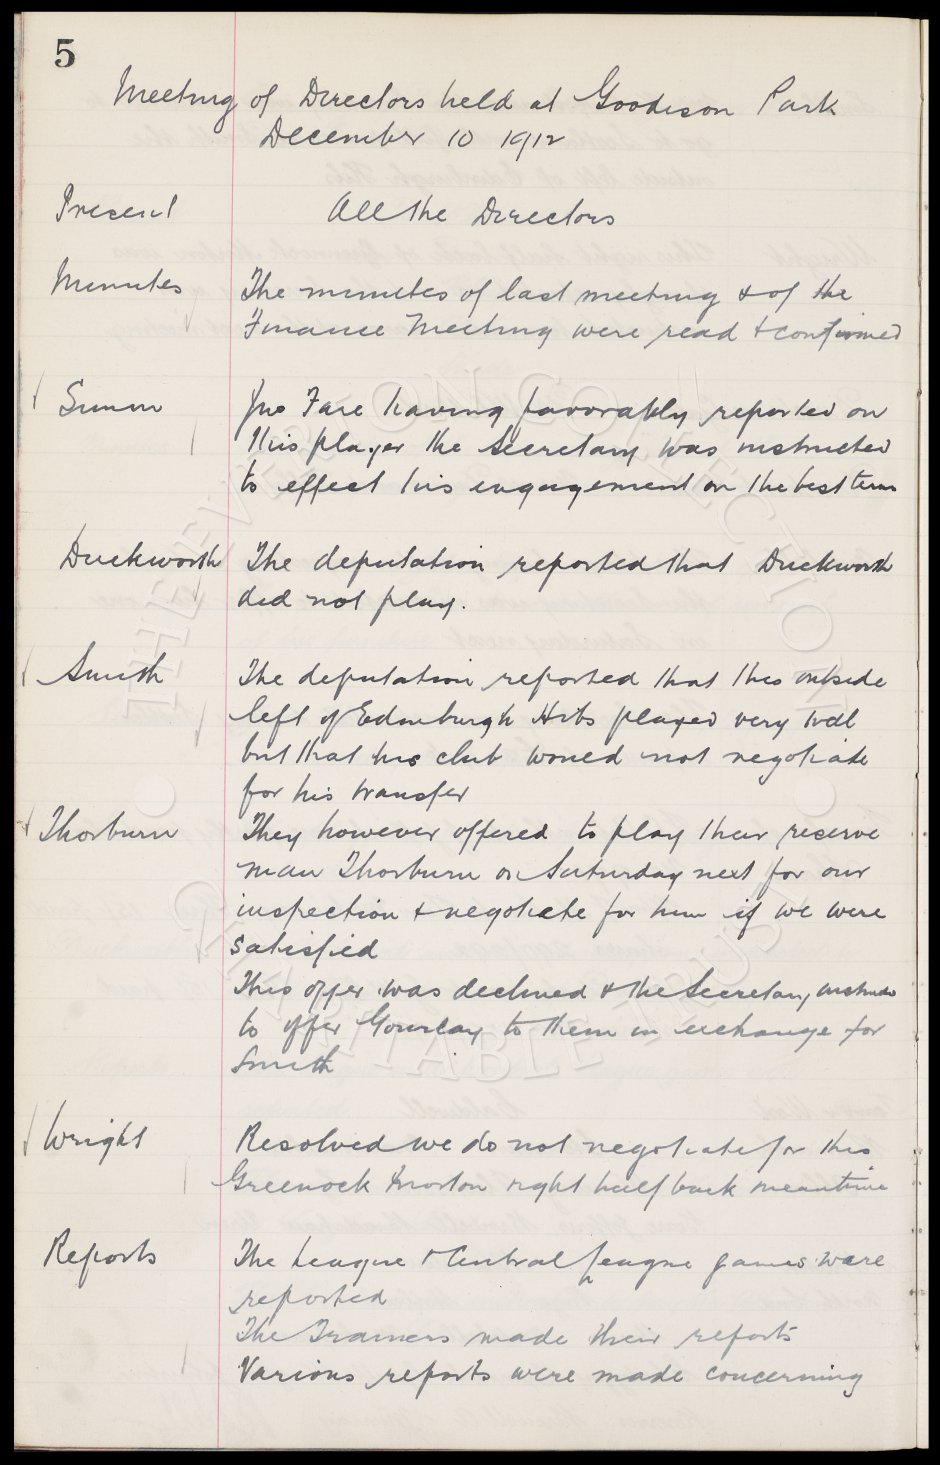 5
Meeting of Directors held at Goodison Park
December 10 1912
Present All the Directors
Minutes The minutes of last meeting & of the
Finance Meeting were read & confirmed
Simm Jno Fare having favorably reported on
this player the Secretary was instructed
to effect his engagement on the best terms
Duckworth The deputation reported that Duckworth
did not play.
Smith The deputation reported that this outside
left of Edinburgh Hibs played very well
but that his club would not negotiate
for his transfer
Thorburn They however offered to play their reserve
man Thorburn on Saturday next for our
inspection & negotiate for him if we were
satisfied
This offer was declined & the Secretary
to offer Gourlay to them in exchange for
Smith
Wright Resolved we do not negotiate for this
Greenock Morton right half back meantime
Reports The League & Central League games were
reported
The Trainers made their reports
Various reports were made concerning
THE EVERTON COLLECTION
CHARITABLE TRUST